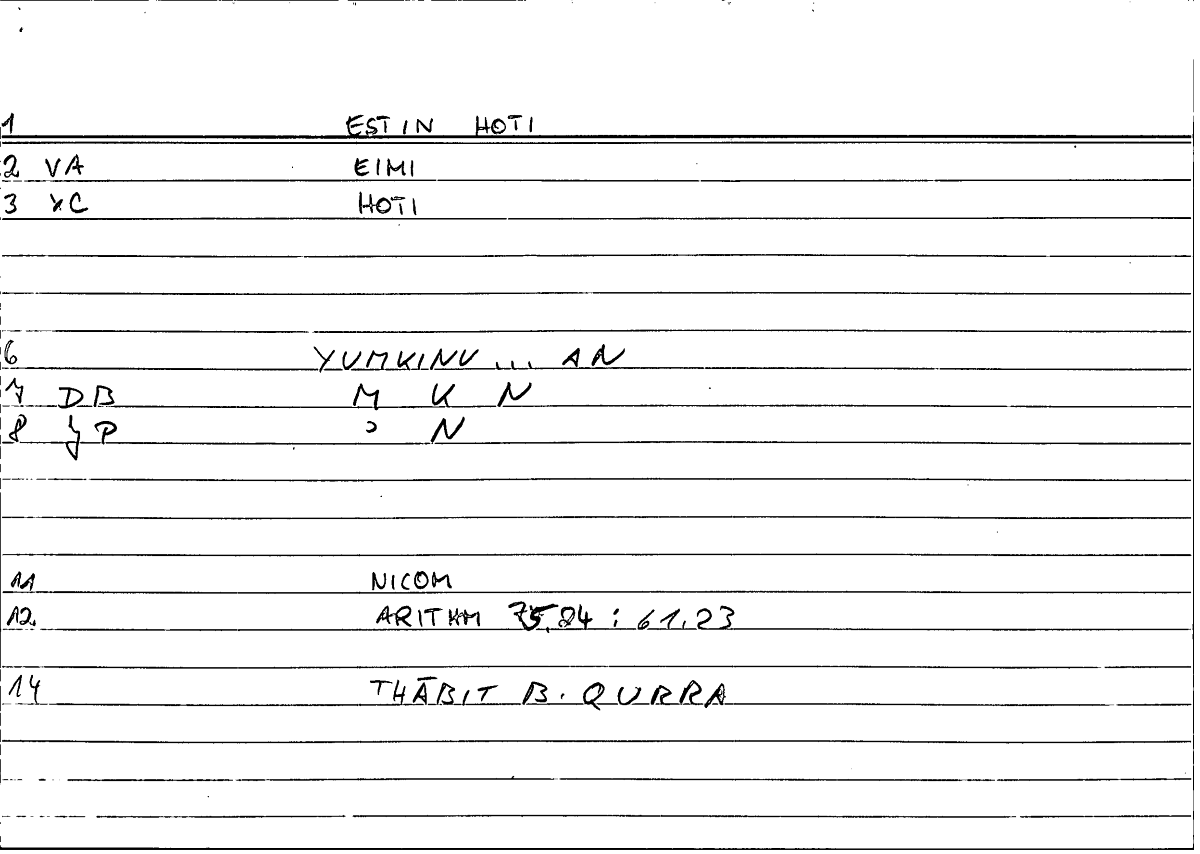 1 ESTIN HOTI
2 VA EIMI
3 XC HOTI
6 YUMKINU ... AN
7 DB M K N
8 P ʾ N
11 NICOM
12. ARITHM 75.24 : 61.23
14 THĀBIT B. QURRA